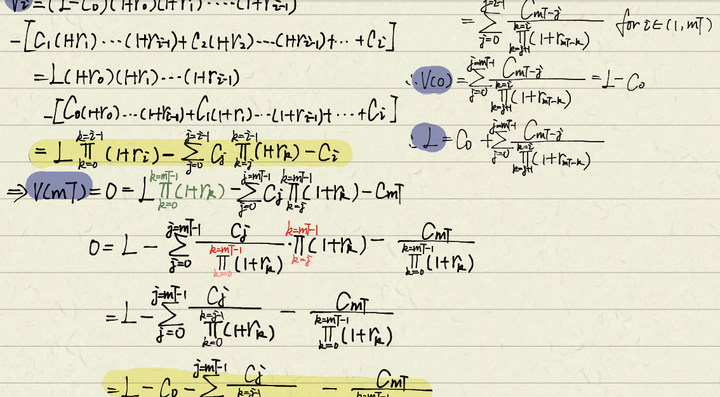 V_i = (L-C_0)(1+r_0)(1+r_1)⋯(1+r_{i-1})
-[C_1(1+r_1)⋯(1+r_{i-1})+C_2(1+r_2)⋯(1+r_{i-1})+⋯+C_i]
=L(1+r_0)(1+r_1)⋯(1+r_{i-1})
-[C_0(1+r_0)⋯(1+r_{i-1})+C_1(1+r_1)⋯(1+r_{i-1})+⋯+C_i]
= L ∏_{k=0}^{k=i-1} (1+r_i) - ∑_{j=0}^{j=i-1} C_j ∏_{k=j}^{k=i-1} (1+r_k) - C_i
⇒ V(mT) = 0 = L ∏_{k=0}^{k=mT-1} (1+r_k) - ∑_{j=0}^{j=mT-1} C_j ∏_{k=j}^{k=mT-1} (1+r_k) - C_{mT}
0 = L - ∑_{j=0}^{j=mT-1} C_j / ∏_{k=0}^{k=mT-1} (1+r_k) · ∏_{k=j}^{k=mT-1} (1+r_k) - C_{mT} / ∏_{k=0}^{k=mT-1} (1+r_k)
= L - ∑_{j=0}^{j=mT-1} C_j / ∏_{k=0}^{k=j-1} (1+r_k) - C_{mT} / ∏_{k=0}^{k=mT-1} (1+r_k)
= L - C_0 - ∑^{j=mT-1} C_j / k=j-1 - C_{mT} / k=mT-1
= ∑_{j=0} C_{mT-j} / ∏_{k=j+1}^{k=i} (1+r_{mT-k}) for i∈(1, mT)
∴ V(0) = ∑_{j=0}^{j=mT-1} C_{mT-j} / ∏_{k=j+1}^{k=i} (1+r_{mT-k}) = L - C_0
∴ L = C_0 + ∑_{j=0}^{j=mT-1} C_{mT-j} / ∏_{k=j+1}^{k=i} (1+r_{mT-k})